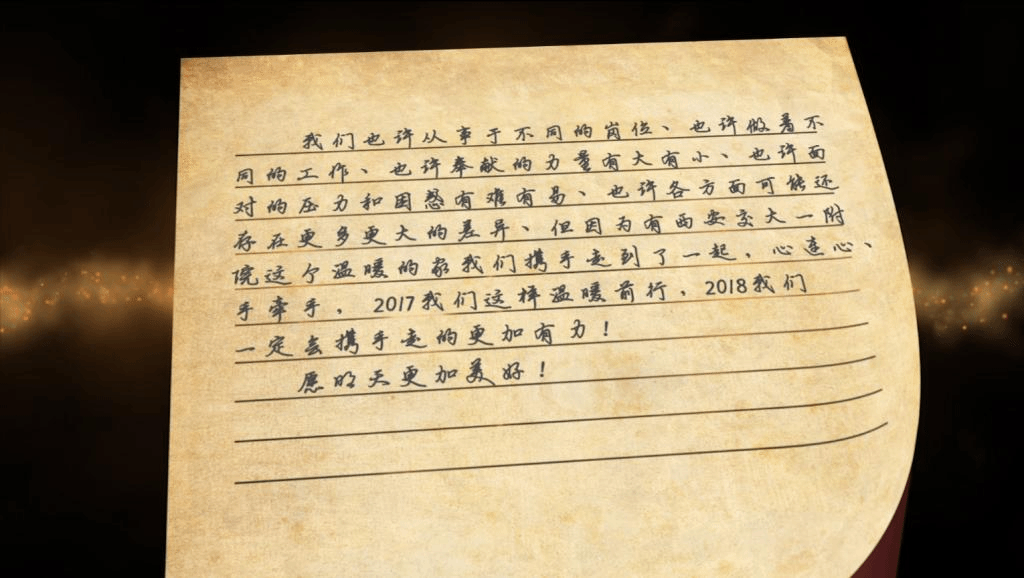 我们也许从事于不同的岗位、也许做着不
同的工作、也许奉献的力量有大有小、也许面
对的压力和困惑有难有易、也许各方面可能还
存在更多更大的差异、但因为有西安交大一附
院这个温暖的家我们携手走到了一起，心连心、
手牵手，2017我们这样温暖前行，2018我们
一定会携手走的更加有力！
愿明天更加美好！